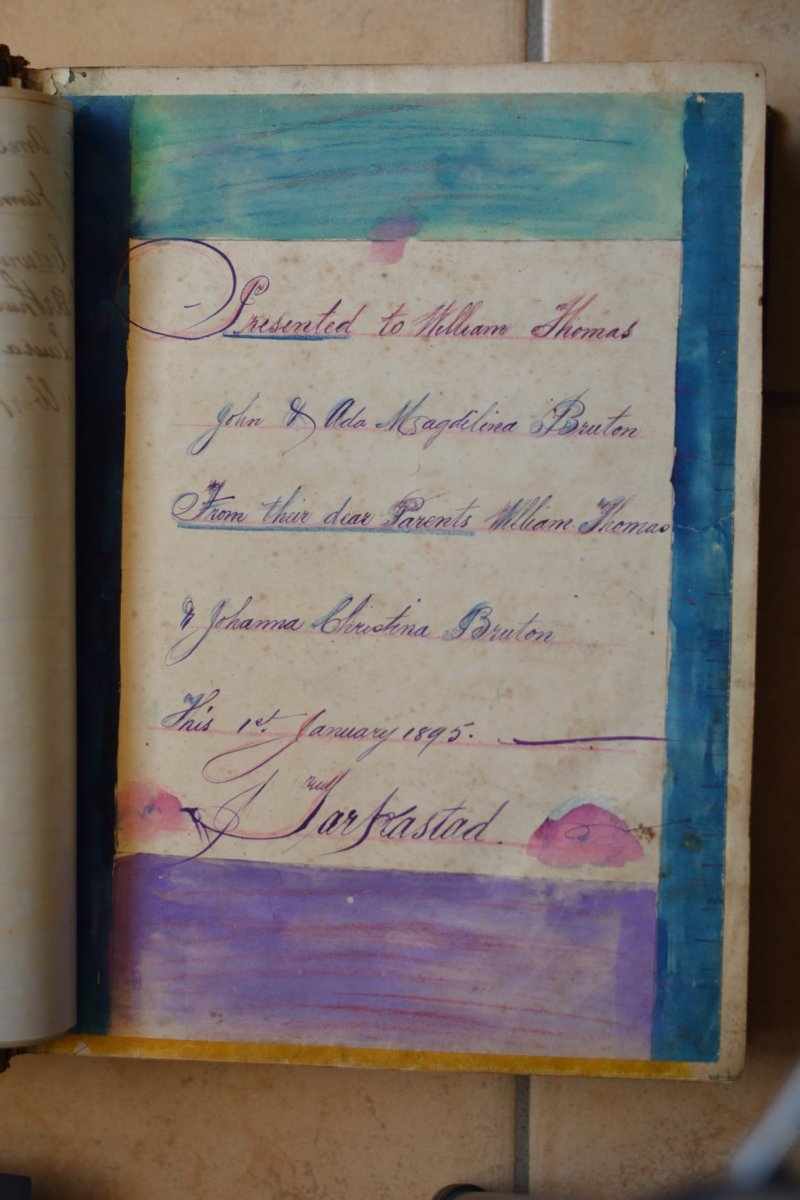 Presented to William Thomas
John & Ada Magdilina Bruton
From their dear Parents William Thomas
& Johanna Christina Bruton
This 1st. January 1895.
Tarkastad.